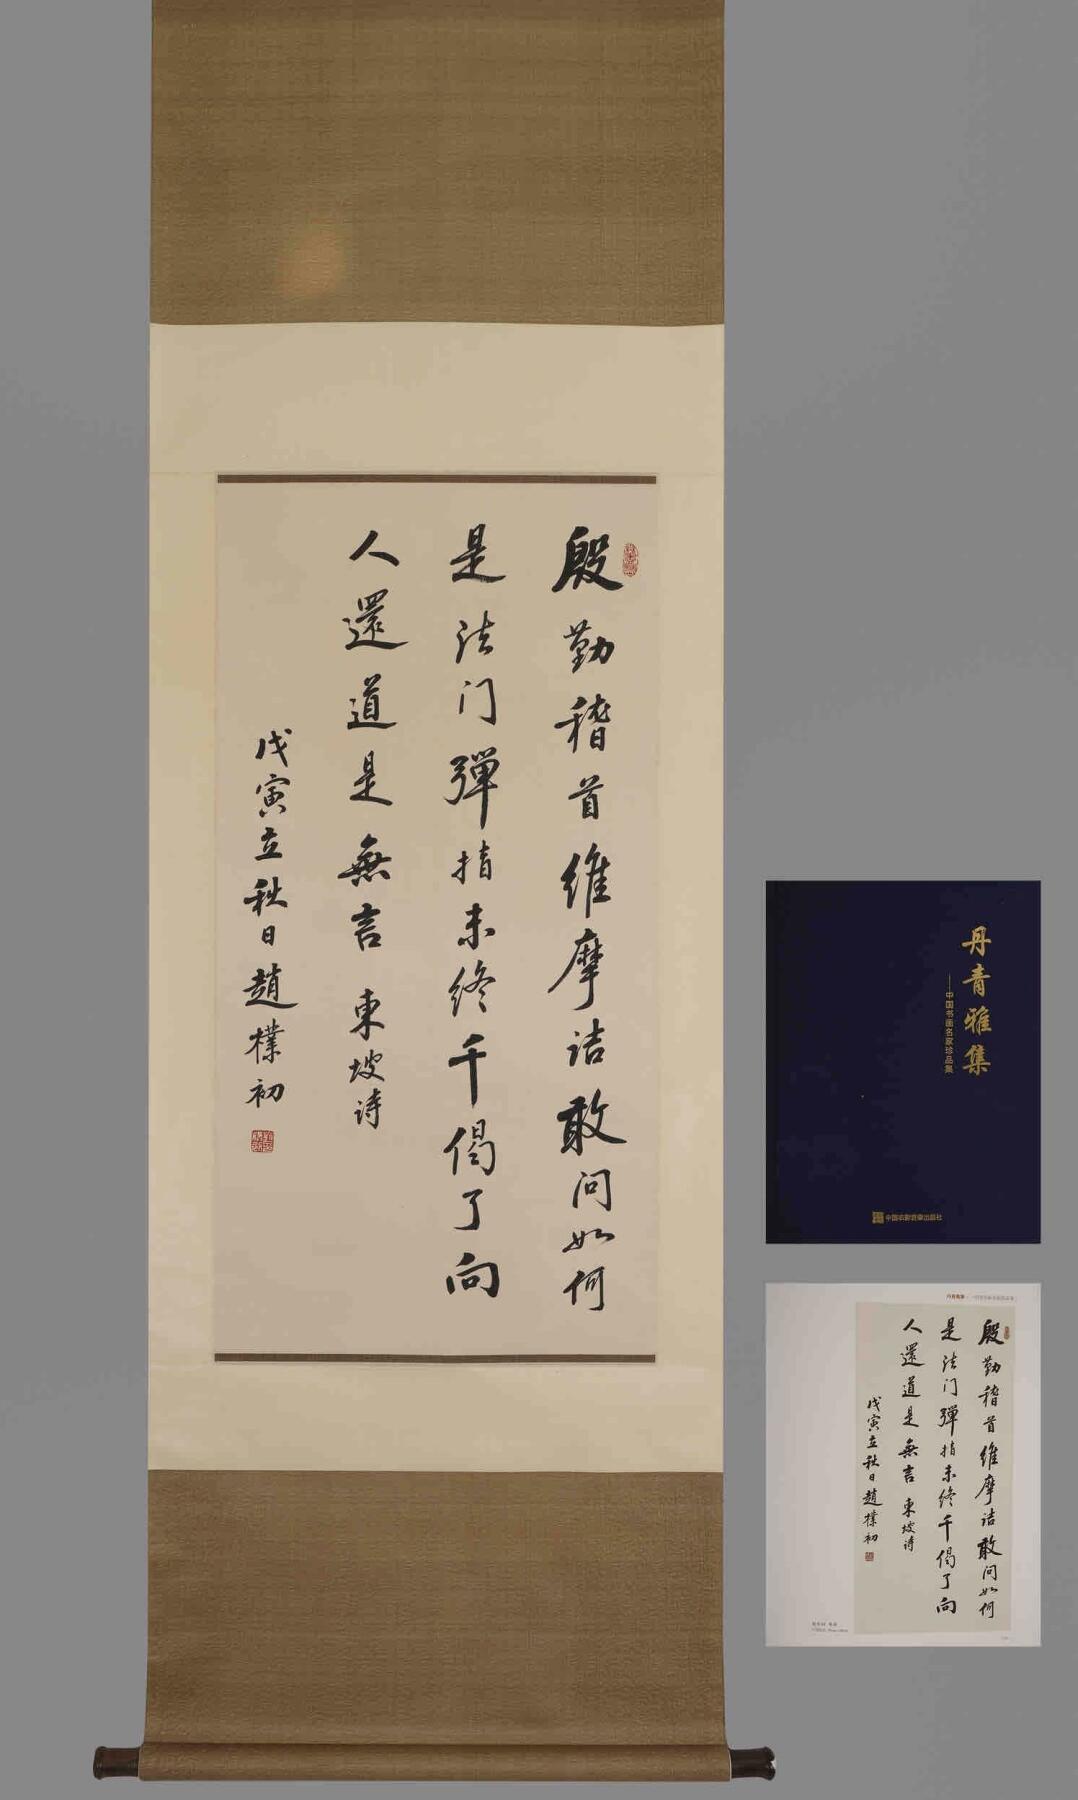 殷勤稽首維摩詰敢问如何
是法门彈指未終千偈了向
人還道是無言 東坡诗
戊寅立秋日趙樸初
丹青雅集
——中国书画名家珍品集
殷勤稽首維摩詰敢问如何
是法门彈指未終千偈了向
人還道是無言 東坡诗
戊寅立秋日趙樸初